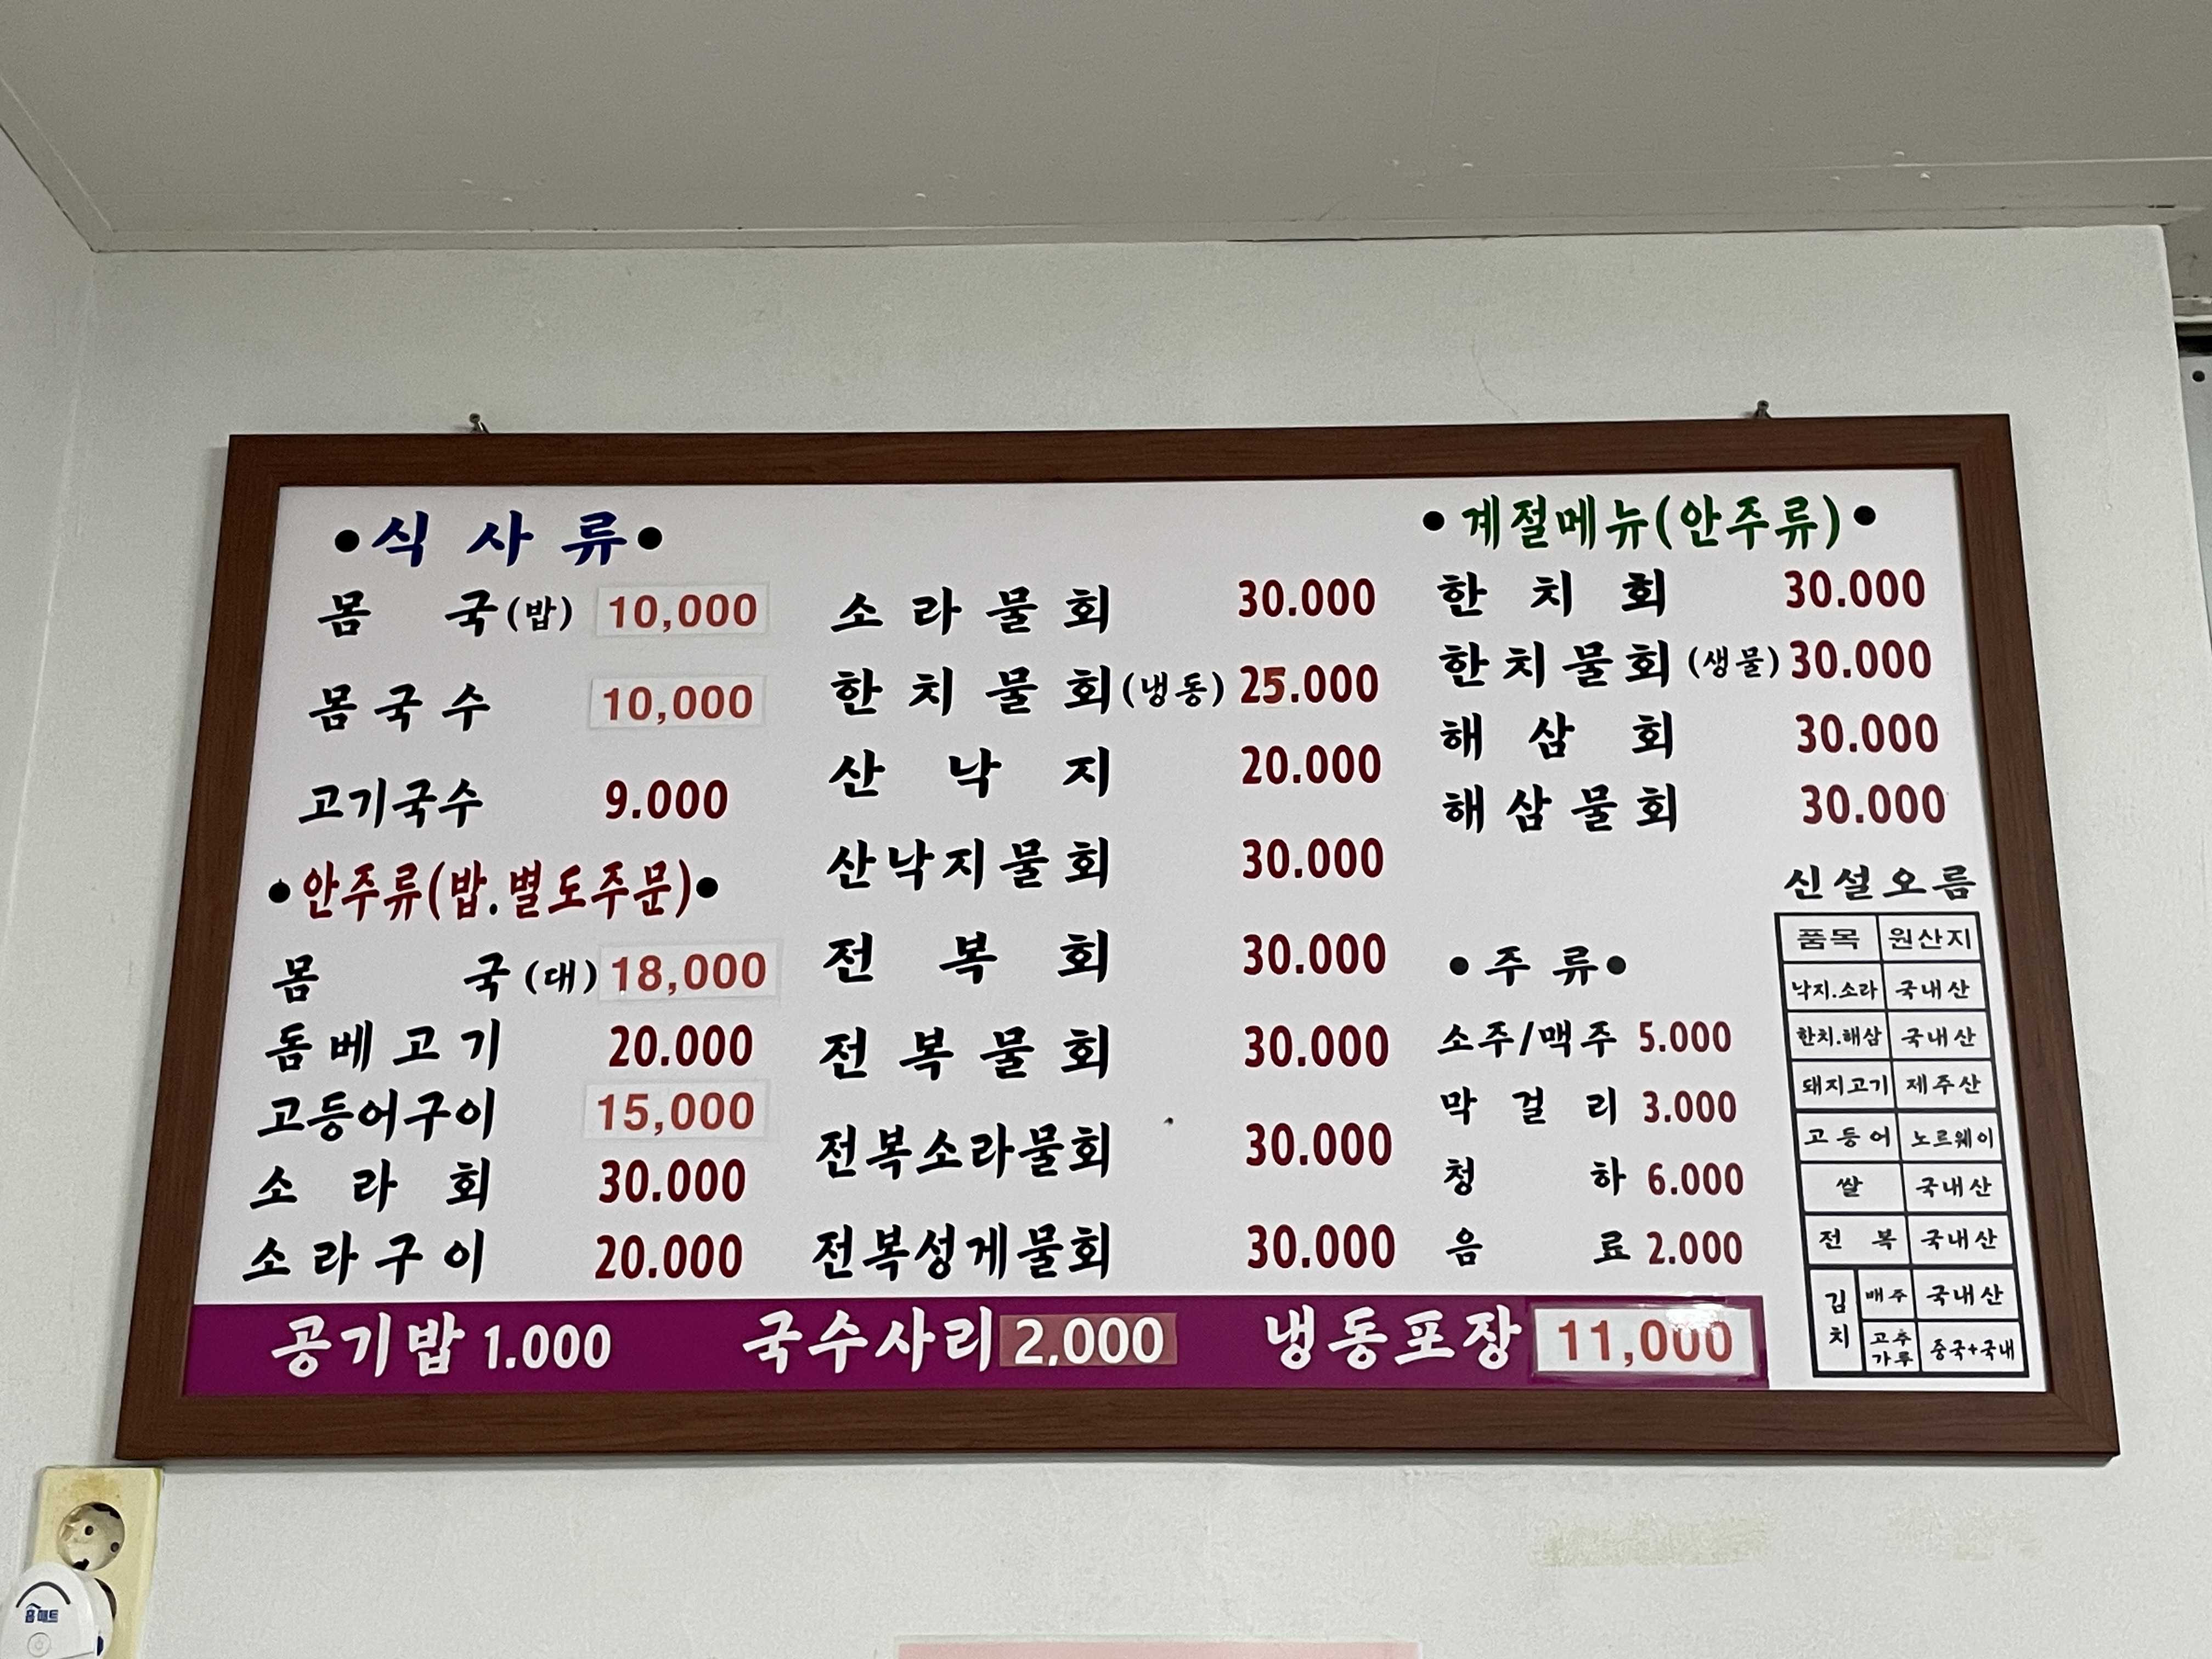 •식사류•
몸국(밥) 10,000
몸국수 10,000
고기국수 9.000
•안주류(밥.별도주문)•
몸국(대) 18,000
돔베고기 20.000
고등어구이 15,000
소라회 30.000
소라구이 20.000
소라물회 30.000
한치물회(냉동) 25.000
산낙지 20.000
산낙지물회 30.000
전복회 30.000
전복물회 30.000
전복소라물회 30.000
전복성게물회 30.000
•계절메뉴(안주류)•
한치회 30.000
한치물회(생물) 30.000
해삼회 30.000
해삼물회 30.000
•주류•
소주/맥주 5.000
막걸리 3.000
청하 6.000
음료 2.000
신설오름
품목 원산지
낙지.소라 국내산
한치.해삼 국내산
돼지고기 제주산
고등어 노르웨이
쌀 국내산
전복 국내산
김치 배추 국내산
고추가루 중국+국내
공기밥 1.000 국수사리 2,000 냉동포장 11,000
홈매트